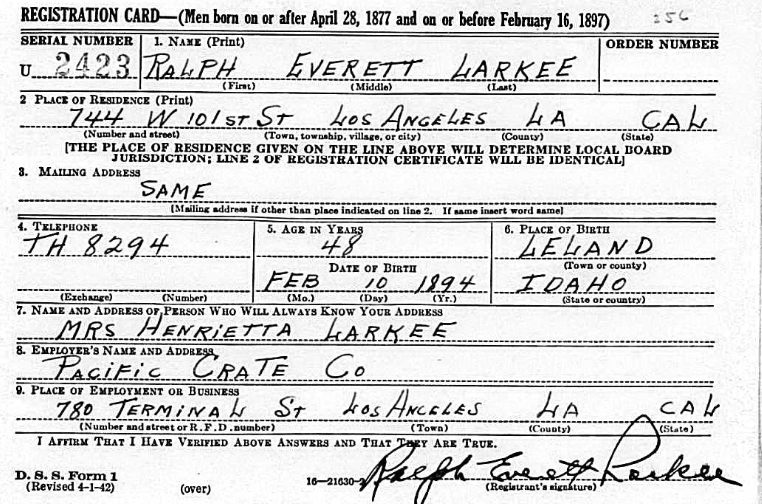 REGISTRATION CARD—(Men born on or after April 28, 1877 and on or before February 16, 1897) 256
SERIAL NUMBER 1. NAME (Print) ORDER NUMBER
U 2423 RALPH EVERETT LARKEE
(First) (Middle) (Last)
2 PLACE OF RESIDENCE (Print)
744 W 101ST ST LOS ANGELES LA CAL
(Number and street) (Town, township, village, or city) (County) (State)
[THE PLACE OF RESIDENCE GIVEN ON THE LINE ABOVE WILL DETERMINE LOCAL BOARD
JURISDICTION; LINE 2 OF REGISTRATION CERTIFICATE WILL BE IDENTICAL]
3. MAILING ADDRESS
SAME
[Mailing address if other than place indicated on line 2. If same insert word same]
4. TELEPHONE 5. AGE IN YEARS 6. PLACE OF BIRTH
TH 8294 48 LELAND
DATE OF BIRTH (Town or county)
FEB 10 1894 IDAHO
(Exchange) (Number) (Mo.) (Day) (Yr.) (State or country)
7. NAME AND ADDRESS OF PERSON WHO WILL ALWAYS KNOW YOUR ADDRESS
MRS HENRIETTA LARKEE
8. EMPLOYER'S NAME AND ADDRESS
PACIFIC CRATE CO
9. PLACE OF EMPLOYMENT OR BUSINESS
780 TERMINAL ST LOS ANGELES LA CAL
(Number and street or R.F.D. number) (Town) (County) (State)
I AFFIRM THAT I HAVE VERIFIED ABOVE ANSWERS AND THAT THEY ARE TRUE.
D. S. S. Form 1
(Revised 4-1-42) (over) 16—21630-2 Ralph Everett Larkee
(Registrant's signature)